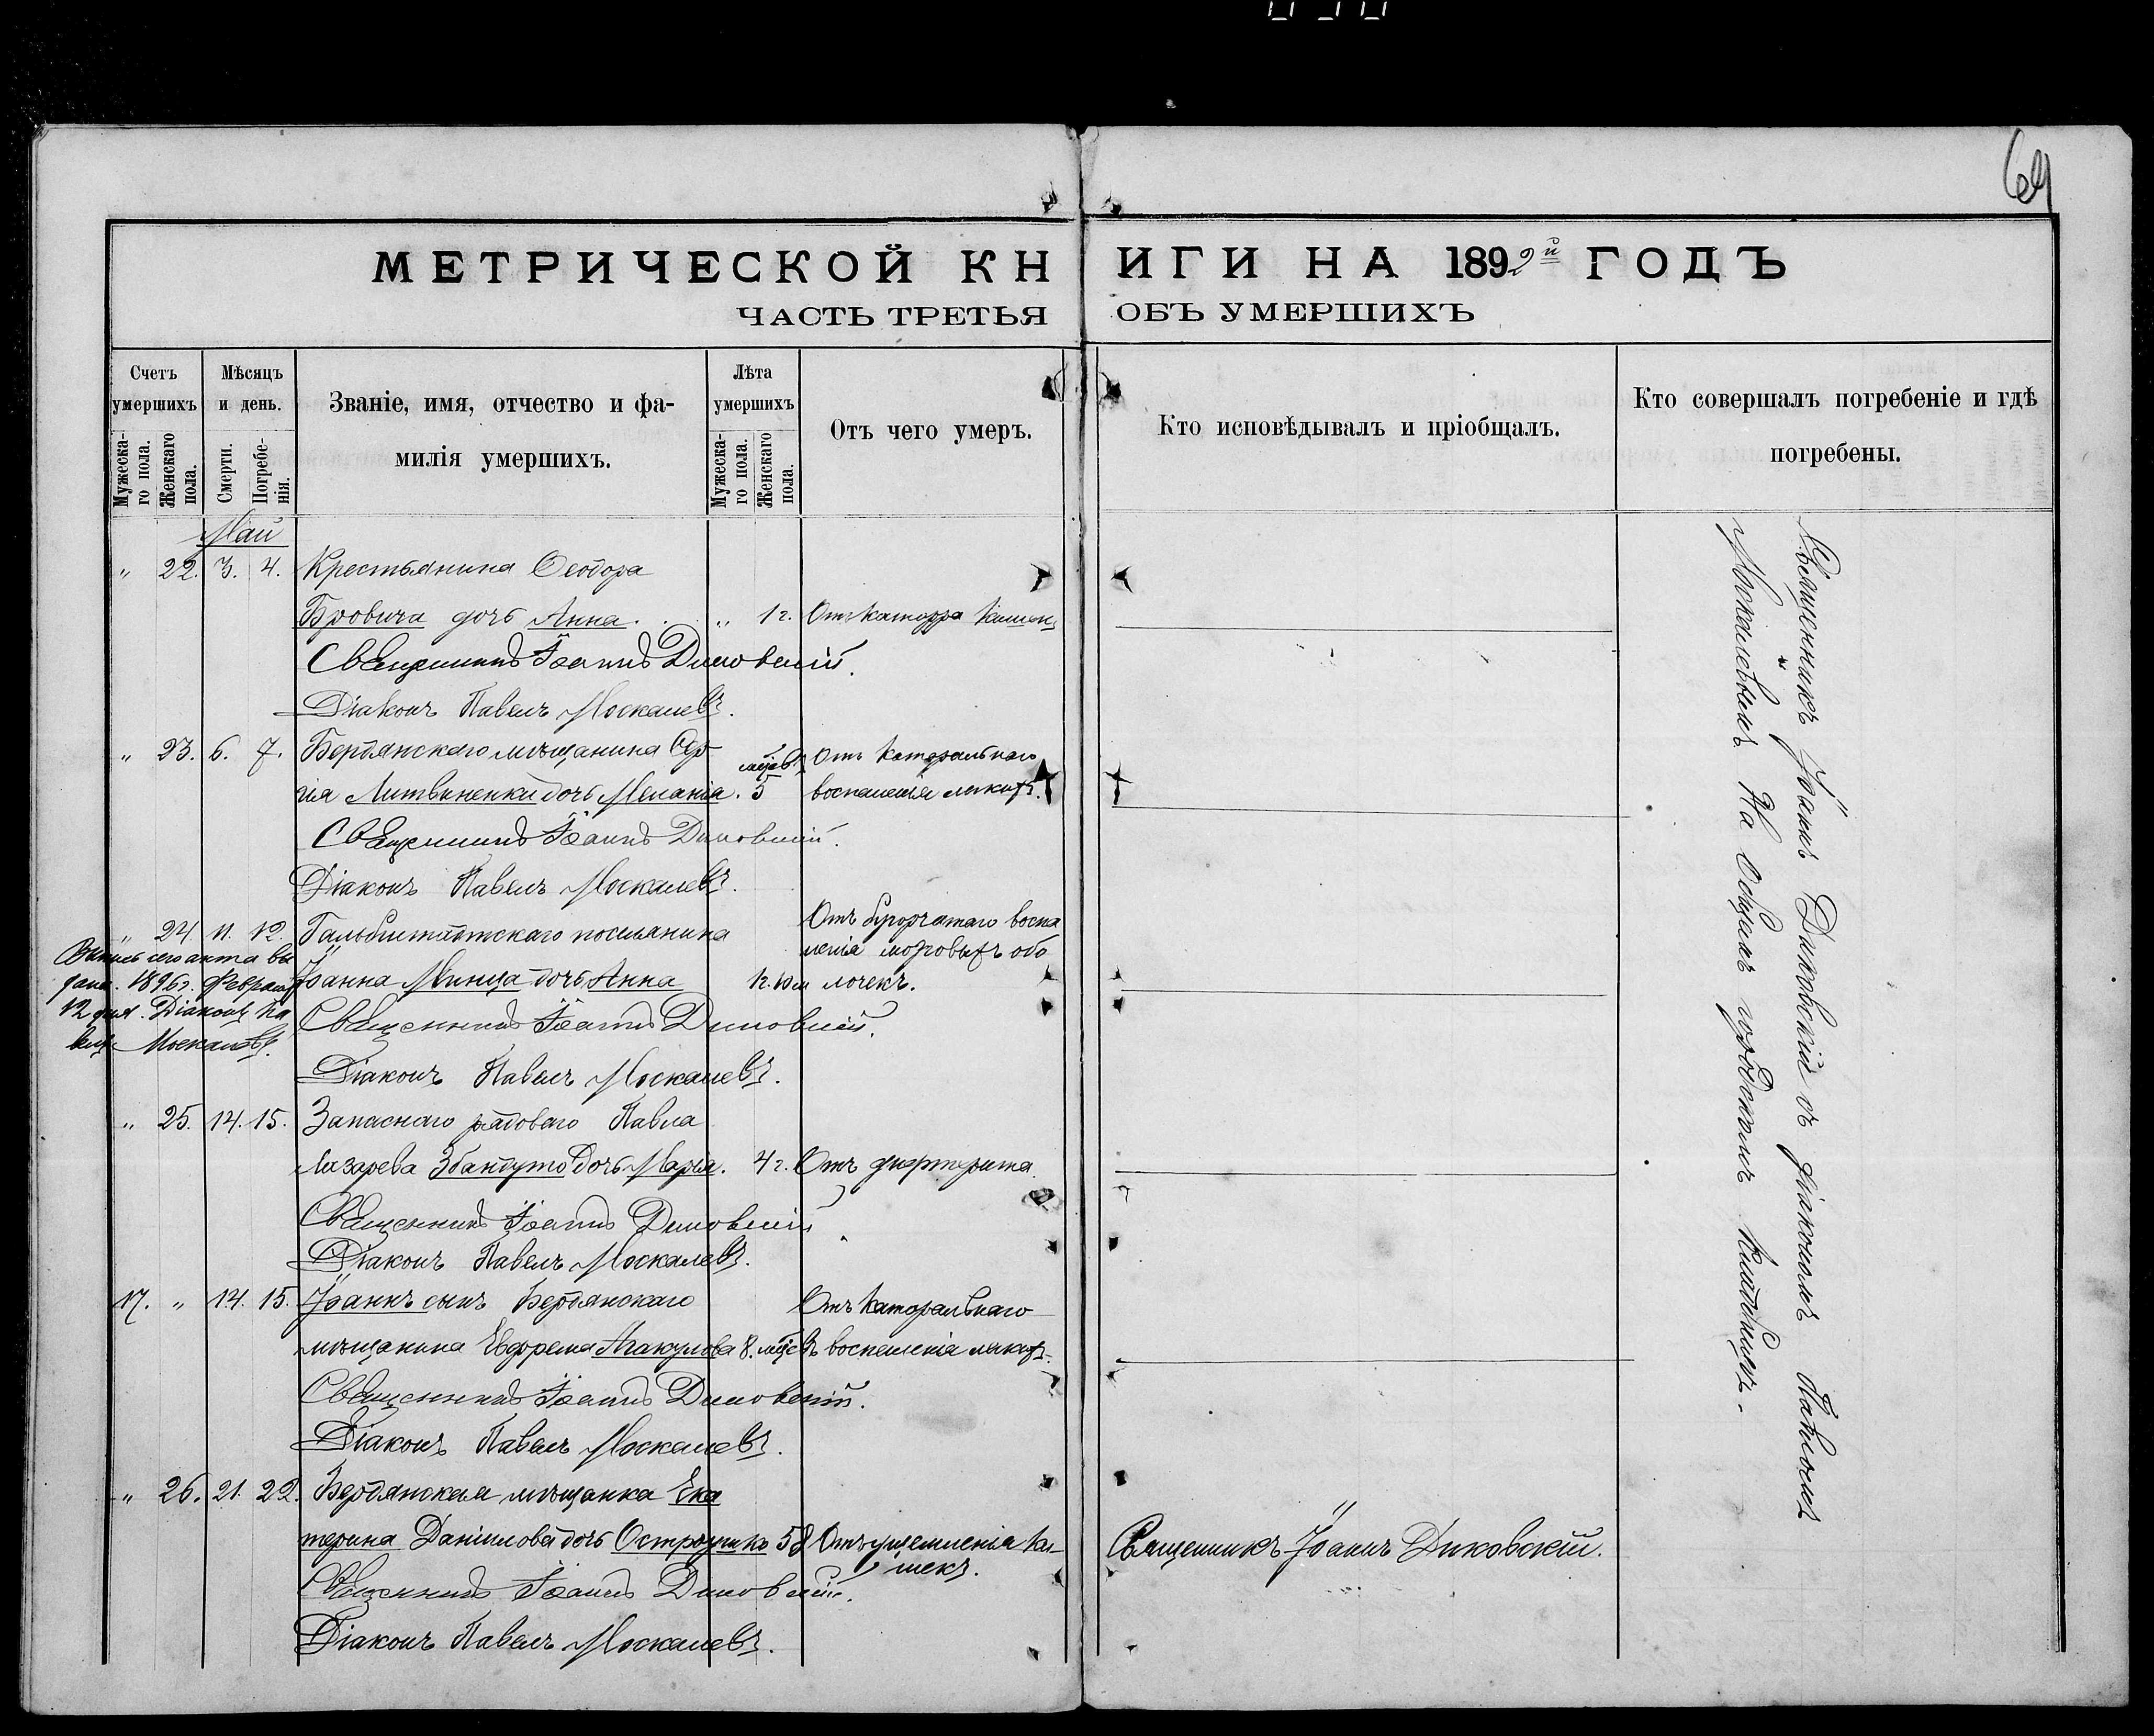 69
МЕТРИЧЕСКОЙ КНИГИ НА 1892й ГОДЪ
ЧАСТЬ ТРЕТЬЯ ОБЪ УМЕРШИХЪ
Счетъ умершихъ
Мѣсяцъ и день.
Званіе, имя, отчество и фамилія умершихъ.
Лѣта умершихъ
Отъ чего умеръ.
Кто исповѣдывалъ и пріобщалъ.
Кто совершалъ погребеніе и гдѣ погребены.
Мужеска-го пола.
Женскаго пола.
Смерти.
Погребе-нія.
Мужеска-го пола.
Женскаго пола.
Май
„ 22. 3. 4. Крестьянина Ѳеодора
Бровича дочь Анна. „ 1 г. Отъ катарра кишек
Священникъ Іоаннъ Диковскій.
Діаконъ Павелъ Москалевъ.
„ 23. 6. 7. Бердянскаго мѣщанина Сер
гія Литвиненки дочь Меланія. 5 мѣсяв. Отъ катаральнаго
воспаленія легких.
Священникъ Іоаннъ Диковскій.
Діаконъ Павелъ Москалевъ.
„ 24. 11. 12. Гальбштадтскаго поселянина Отъ бугорчатаго воспа
Іоанна Минца дочь Анна ленія мозговыхъ обо
лочекъ.
Выпись сего акта вы
дана. 1896 г. Февраля
12 дня. Діаконъ Па
велъ Москалевъ.
Священникъ Іоаннъ Диковскій.
Діаконъ Павелъ Москалевъ.
„ 25. 14. 15. Запаснаго рядоваго Павла
Лазарева дочь Марія. 4 г. Отъ дифтерита.
Священникъ Іоаннъ Диковскій
Діаконъ Павелъ Москалевъ.
17. „ 14. 15. Іоаннъ сынъ Бердянскаго Отъ катаральнаго
мѣщанина Евфрема 8. мѣсцвъ воспаленія легких.
Священникъ Іоаннъ Диковскій.
Діаконъ Павелъ Москалевъ.
„ 26. 21. 22. Бердянская мѣщанка Ека
терина Даніилова дочь Остроушко 58 Отъ ущемленія ки-
шекъ.
Священникъ Іоаннъ Диковскій.
Священникъ Іоаннъ Диковскій.
Діаконъ Павелъ Москалевъ.
Священникъ Іоаннъ Диковскій съ діакономъ Павломъ
Москалевымъ на общемъ городскомъ кладбищѣ.